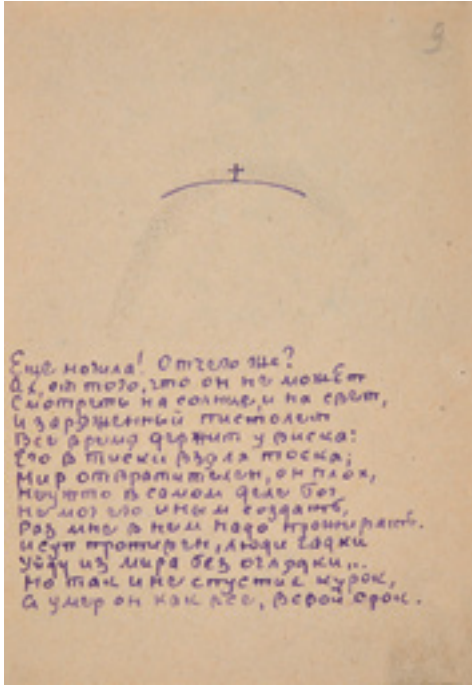 9
Еще могила! Отчего же?
Да, от того, что он не может
Смотреть на солнце, и на свет,
И заряженный пистолет
Все время держит у виска:
Его в тиски взяла тоска;
Мир отвратителен, он плох,
Неужто в самом деле бог
Не мог его иным создать,
Раз мне в нем надо
И суп противен, люди гадки
Уйду из мира без оглядки...
Но так и не спустив курок,
А умер он как все, в свой срок.